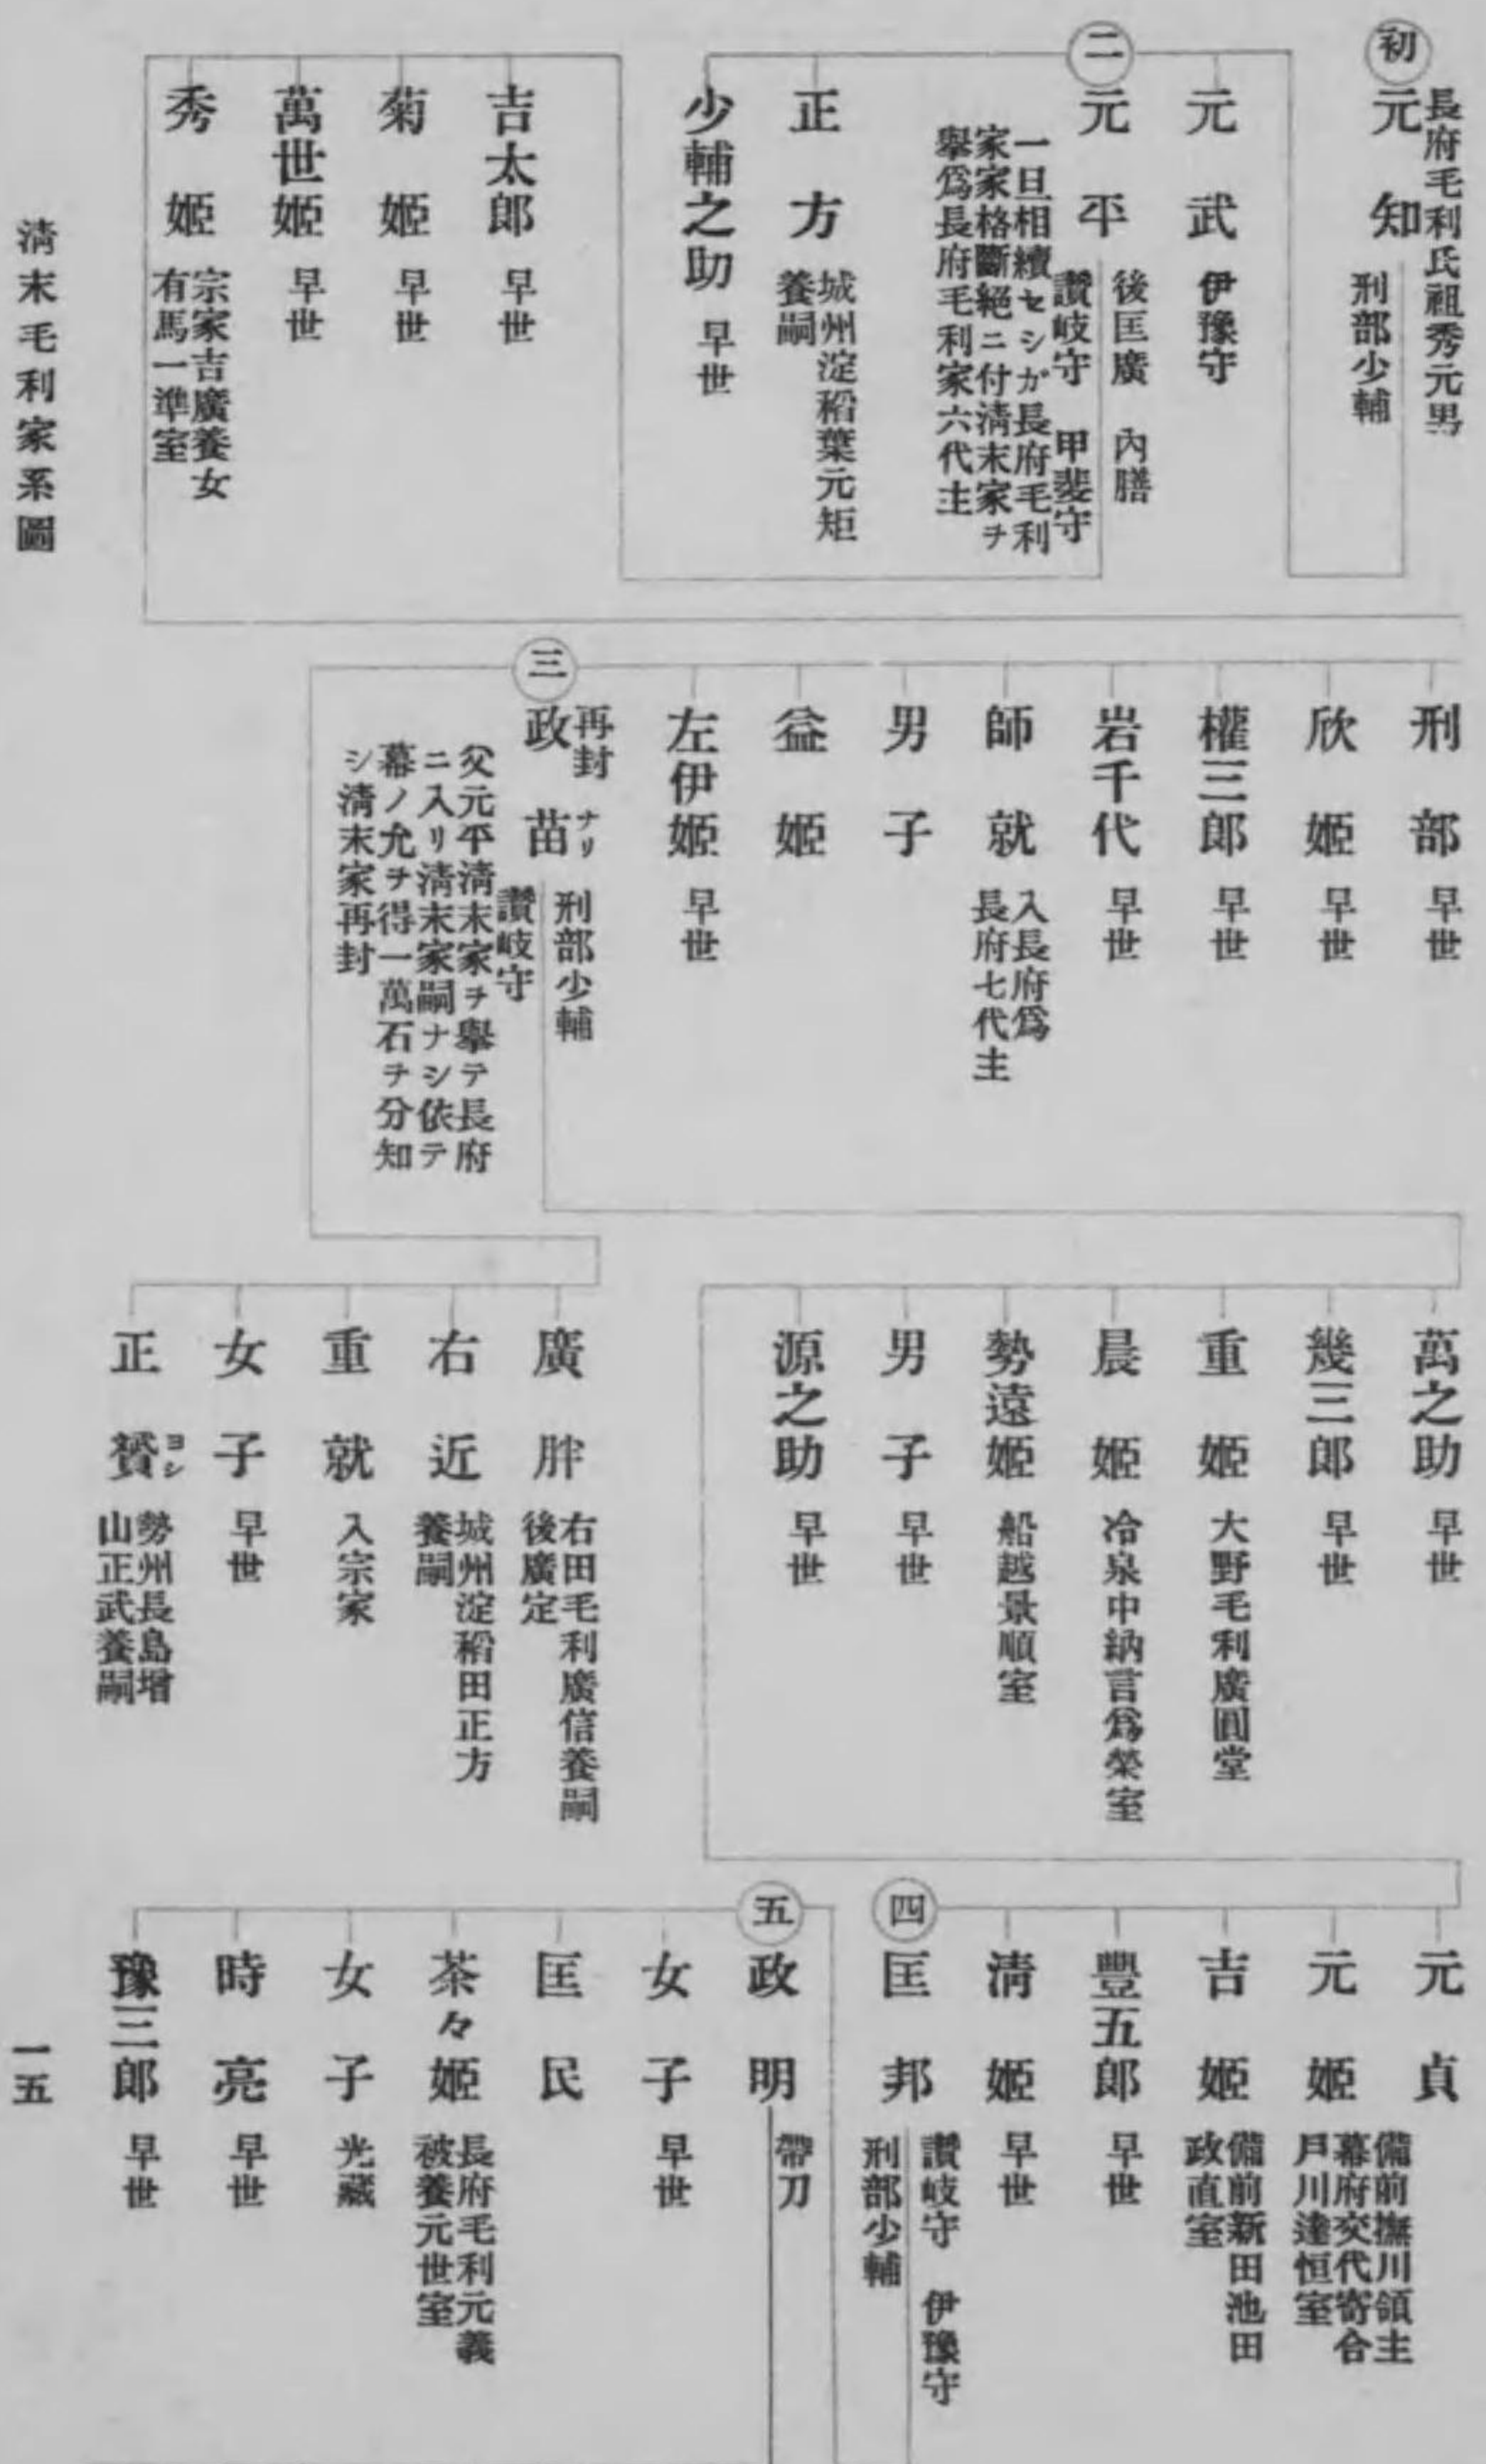 長府毛利氏祖秀元男
初
元知
刑部少輔
元武
伊豫守
二
元平
後匡廣　內膳
讚岐守　甲斐守
一旦相續セシガ長府毛利
家家格斷絕ニ付淸末家ヲ
擧爲長府毛利家六代主
正方
城州淀稻葉元矩
養嗣
少輔之助
早世
吉太郎
早世
菊姬
早世
萬世姬
早世
秀姬
宗家吉廣養女
有馬一準室
刑部
早世
欣姬
早世
權三郎
早世
岩千代
早世
師就
入長府爲
長府七代主
男子
益姬
左伊姬
早世
三
再封ナリ
政苗
刑部少輔
讚岐守
父元平淸末家ヲ擧テ長府
ニ入リ淸末家嗣ナシ依テ
幕ノ允ヲ得一萬石ヲ分知
シ淸末家再封
萬之助
早世
幾三郎
早世
重姬
大野毛利廣圓堂
晨姬
冷泉中納言爲榮室
勢遠姬
船越景順室
男子
早世
源之助
早世
廣胖
右田毛利廣信養嗣
後廣定
右近
城州淀稻田正方
養嗣
重就
入宗家
女子
早世
正贇
ヨシ
勢州長島增
山正武養嗣
元貞
元姬
備前撫川領主
幕府交代寄合
戶川逵恒室
吉姬
備前新田池田
政直室
豐五郎
早世
淸姬
早世
四
匡邦
讚岐守　伊豫守
刑部少輔
五
政明
帶刀
女子
早世
匡民
茶々姬
長府毛利元義
被養元世室
女子
光藏
時亮
早世
豫三郎
早世
淸末毛利家系圖
一五